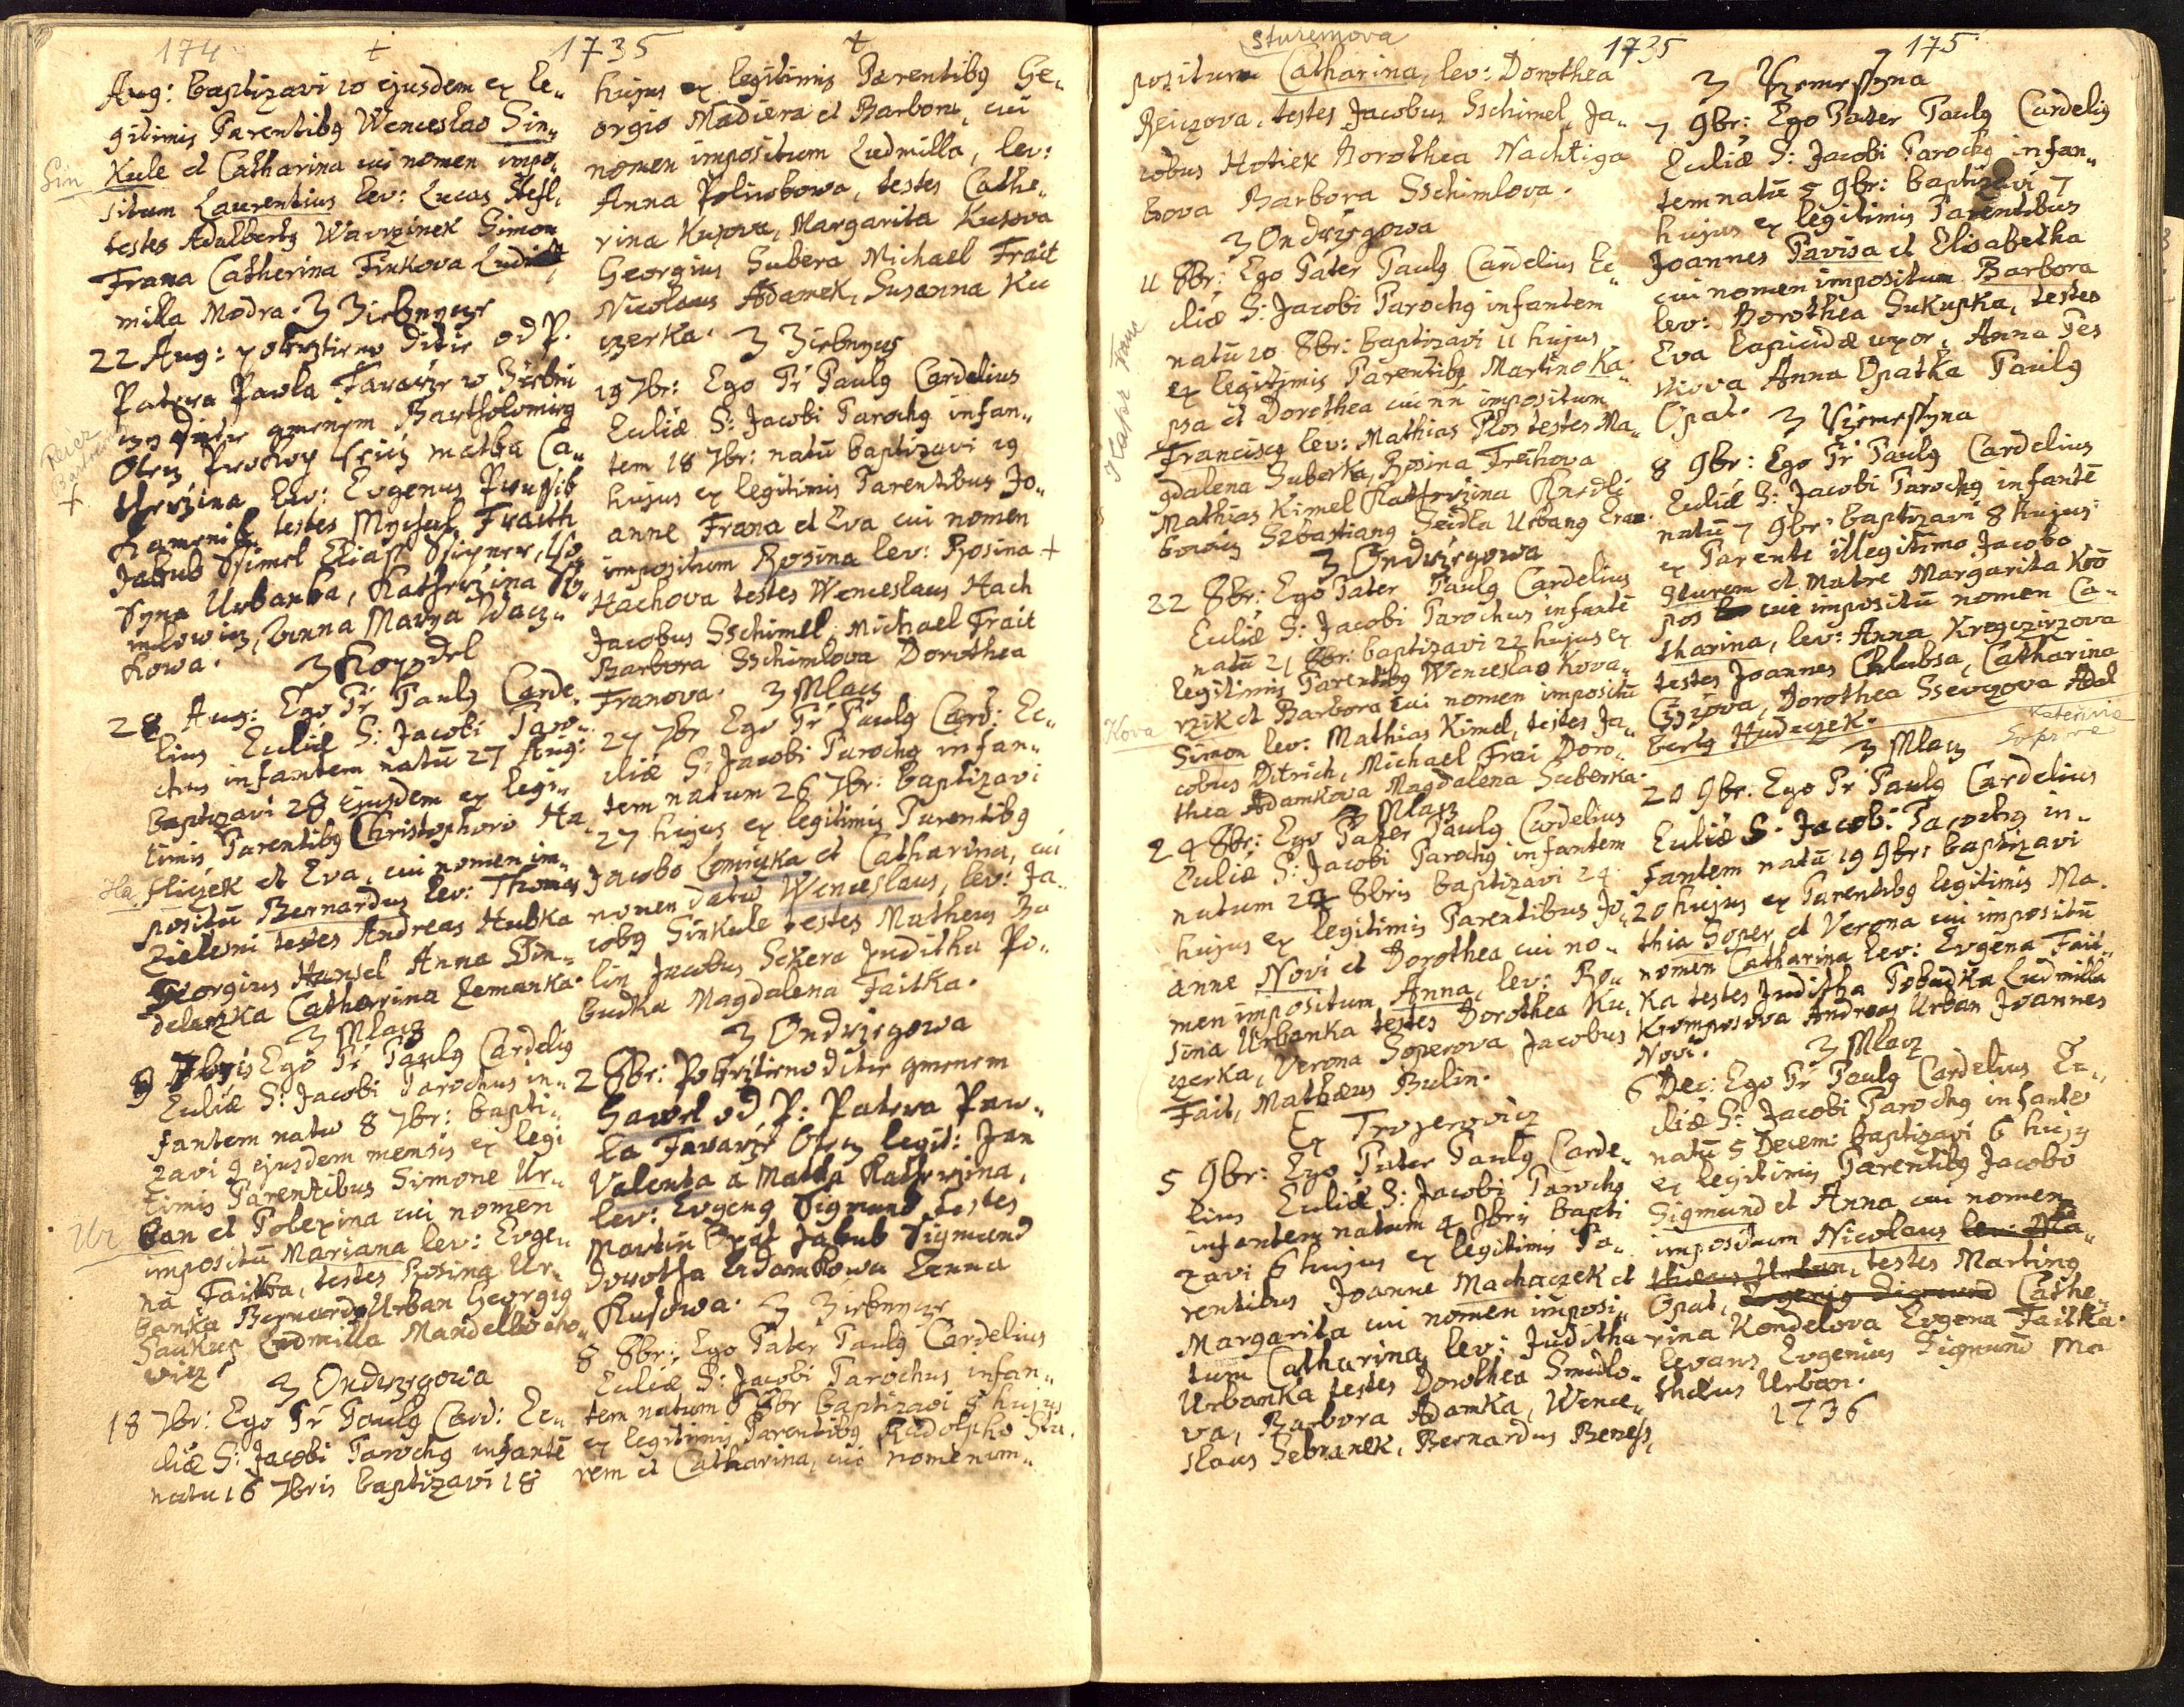 174 + 1735 +
Aug: baptizavi 10 ejusdem ex le„
gitimis Parentibq Wenceslao Sin„
Sin
Kule et Catharina cui nomen impo„
situm Laurentius lev: Lucas Stefl,
testes Adalbertq Wavrzinek Simon
Frana Catherina Finkova Ludi
milla Modra. Z Zirbnycze
22 Aug: pokrztieno Ditie od P.
Patera Pawla Fararze w Zirbni
czy gmenem Bartholomieg
Reicz
Otecz
matka Ca„
trzina lev: Evgenus
testes Mychal Fraith
Jakub Ssimel Elias
Urbanka, Kathrzina
Anna Marya Wacz„
kowa. Z Kopdel
28 Aug: Ego Pr Paulq Carde„
lius Eccliæ S: Jacobi Paro„
chus infantem natū 27 Aug:
baptizavi 28 Ejusdem ex legi„
timis Parentibq Christophoro Ha„
Ha.
fliczek et Eva, cui nomen im„
positū Bernardus lev: Thomas
Zieleni testes Andreas Hubka
Georgius Hansel Anna Din„
delarzka Catharina Zemanka.
Z Mlacz
9 7bris Ego Pr Paulq Cardeliq
Eccliæ S: Jacobi Parochus in„
fantem natu 8 7br: bapti„
zavi 9 ejusdem mensis ex legi
timis Parentibus Simone Ur„
Ur
ban et Polexina cui nomen
impositū Mariana lev: Evge„
na Faitka, testes Rosina Ur„
banka Bernardq Urban Georgiq
Saukup Ludmilla Mandelbocho„
vicz.
Z Ondrzegowa
18 7br: Ego Pr Paulq Card: Ec„
cliæ S: Jacobi Parochq infantē
natu 16 7bris baptizavi 18
hujus ex legitimis Parentibq Ge„
orgio Madiera et Barbora, cui
nomen impositum Ludmilla, lev:
Anna Poliwkowa, testes Cathe„
rina Kuzova, Margarita Kusova
Georgius Subera Michael Frait
Nicolaus Adamek, Susanna Ku
czerka. Z Zirbnycz
19 7br: Ego Pr Paulq Cardelius
Eccliæ S: Jacobi Parochq infan„
tem 18 7br: natū baptizavi 19
hujus ex legitimis Parentibus Jo„
anne Frana et Eva cui nomen
impositum Rosina lev: Rosina +
Hachova testes Wenceslaus Hach
Jacobus Sschimel Michael Frait
Barbora Sschimlova Dorothea
Franova. Z Mlacz
27 7br Ego Pr Paulq Card: Ec„
cliæ S: Jacobi Parochq infan„
tem natum 26 7br: baptizavi
27 hujus ex legitimis Parentibq
Jacobo Lomiczka et Catharina, cui
nomen datū Wenceslaus, lev: Ja„
cobq Sinkule testes Matheus Bu
lin Jacobus Sekera Juditha Po„
budka Magdalena Faitka.
Z Ondrzegowa
2 8br: Pokrztieno ditie gmenem
Hawel od P: Patera Paw„
la Fararze Otecz legit: Jan
Valenta a Matka Kathrzina,
lev: Evgenq Sigmund testes
Martin Opat Jakub Sigmund
Dorotha Adamkowa Anna
Kusowa. Z Zirbnycze
8 8br: Ego Pater Paulq Cardelius
Eccliæ S: Jacobi Parochus infan„
tem natum 6 8br baptizavi 8 hujus
ex legitimis Parentibq Rudolpho Stu„
rem et Catharina, cui nomen im„
Sturemova 1735 175
positum Catharina, lev: Dorothea
Reiczova, testes Jacobus Sschimel, Ja„
cobus Hotiek Dorothea Nachtiga
lova Barbora Sschimlova.
Z Ondrzegowa
11 8br: Ego Pater Paulq Cardelius Ec„
cliæ S: Jacobi Parochq infantem
natū 10 8br: baptizavi 11 hujus
ex legitimis Parentibq Martino Ka„
psa et Dorothea cui nn impositum
Kapr Franc
Franciscq lev: Mathias Plos testes Ma„
gdalena Suberka, Rosina Freihova
Mathias Kimel Kathrzina Knedli
kowicz Sebastianq Seidla Urbanq
Z Ondrzegowa
22 8br: Ego Pater Paulq Cardelius
Eccliæ S: Jacobi Parochus infantē
natū 21 8br: baptizavi 22 hujus ex
legitimis Parentibq Wenceslao Kova„
Kova
rzik et Barbora cui nomen impositū
Simon lev: Mathias Kimel, testes Ja„
cobus Ditrich, Michael Frai Doro„
thea Adamkova Magdalena Suberka.
Z Mlacz
24 8br: Ego Pater Paulq Cardelius
Eccliæ S: Jacobi Parochq infantem
natum 24 8bris baptizavi 24
hujus ex legitimis Parentibus Jo„
anne Novi et Dorothea cui no„
men impositum Anna, lev: Ro„
sina Urbanka testes Dorothea Ku„
czerka, Verona Soperova Jacobus
Fait, Mathæus Bulin.
Ex Troyerovicz
5 9br: Ego Pater Paulq Carde„
lius Eccliæ S: Jacobi Parochq
infantem natum 4 9bris bapti
zavi 6 hujus ex legitimis Pa„
rentibus Joanne Machaczek et
Margarita cui nomen imposi„
tum Catharina, lev: Juditha
Urbanka testes Dorothea Smidlo„
va, Barbora Adamka, Wence„
slaus Sebranek, Bernardus Beness,
Z Krzemessyna
7 9br: Ego Pater Paulq Cardeliq
Eccliæ S: Jacobi Parochq infan„
tem natū 5 9br: baptizavi 7
hujus ex legitimis Parentibus
Joannes Pavisa et Elisabetha
cui nomen impositum Barbora
lev: Dorothea Sukupka, testes
Eva Lapicidæ uxor, Anna Pes
kova Anna Opatka Paulq
Opat. Z Krzemessyna
8 9br: Ego Pr Paulq Cardelius
Eccliæ S: Jacobi Parochq infantē
natū 7 9br: baptizavi 8 hujus
ex Parente illegitimo Jacobo
Sturem et Matre Margarita Kro
pos cui impositū nomen Ca„
tharina, lev: Anna Kregczirzova
testes Joannes Chlubsa, Catharina
Czizova, Dorothea Ssevczova Adal
bertq Hudeczek.
Kateřina
Z Mlacz
20 9br: Ego Pr Paulq Cardelius
Eccliæ S. Jacobi Parochq in„
fantem natū 19 9br: baptizavi
20 hujus ex Parentibq legitimis Ma„
thia Soper et Verona cui impositū
nomen Catharina lev: Evgena Fait„
ka testes Juditha Pobudka Ludmilla
Kromposova Andreas Urban Joannes
Novi. Z Mlacz
6 Dec: Ego Pr Paulq Cardelius Ec„
cliæ S: Jacobi Parochq infante
natū 5 Decem: baptizavi 6 hujq
ex legitimis Parentibq Jacobo
Sigmund et Anna cui nomen
impositum Nicolaus lev: Ma„
thæus Urban, testes Martinq
Opat, Evgeniq Sigmund Cathe„
rina Kondelova Evgena Faitka.
levans Evgenius Sigmund Ma
thæus Urban.
1736